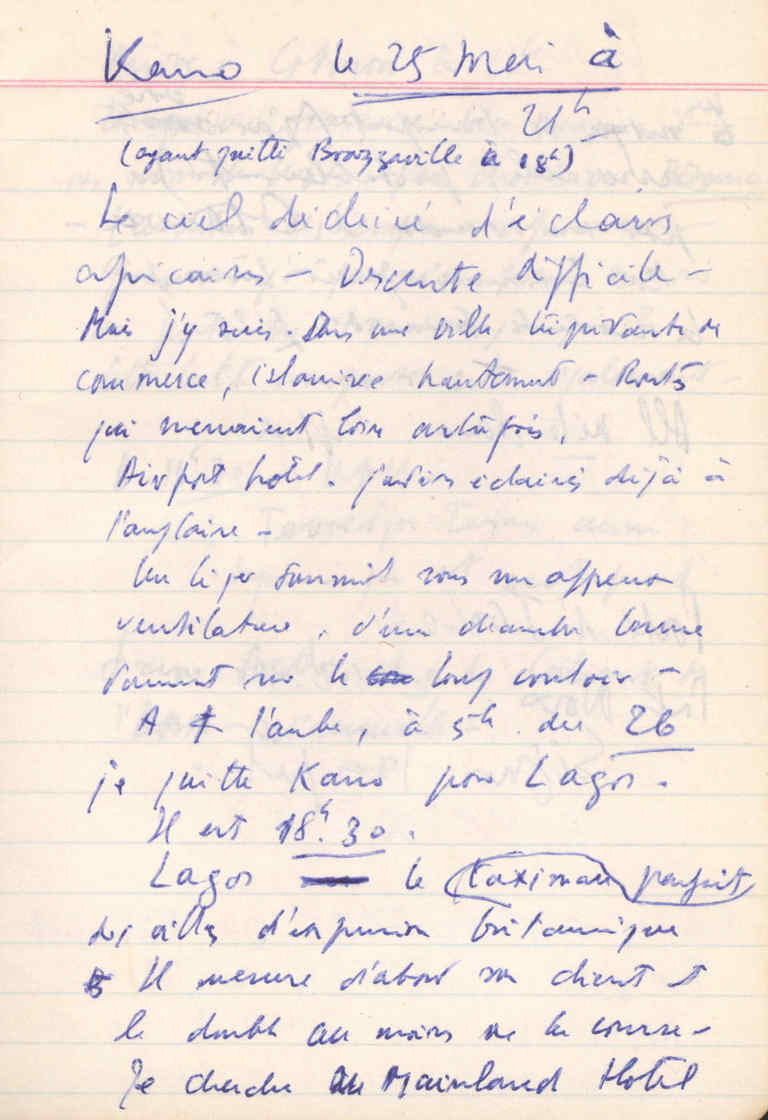 Kano le 25 Mai à
21h
(ayant quitté Brazzaville à 18h)
Le ciel déchiré d'éclairs
africains – Descente difficile –
Mais j'y suis. Dans une ville trépidante de
commerce, islamisée hautement – Routes
qui menaient loin autrefois.
Airport hôtel. jardins éclairés déjà à
l'anglaise –
Un léger sommeil sous un affreux
ventilateur, d'une chambre
donnant sur le long couloir –
A l'aube, à 5h. du 26
je quitte Kano pour Lagos.
Il est 18h.30.
Lagos le taximan parfait
des villes d'expression britannique
Il mesure d'abord son client et
le double au moins de la course –
Je cherche Mainland Hotel